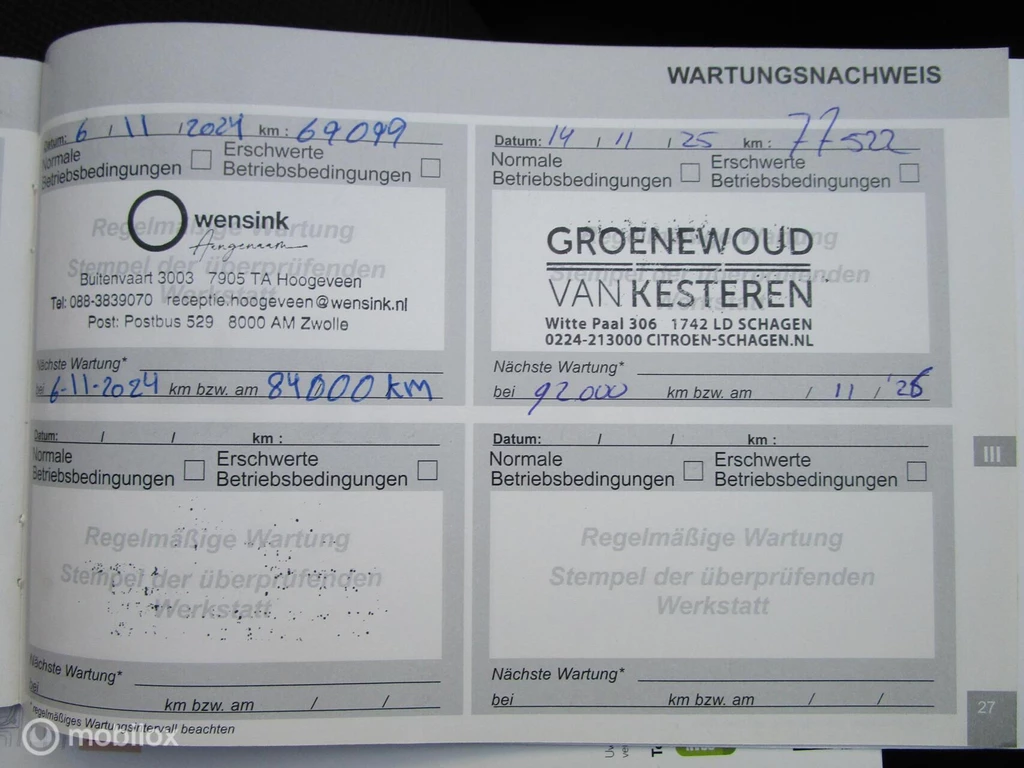 WARTUNGSNACHWEIS
Datum: 6 / 11 / 2024 km : 69099
Normale
Betriebsbedingungen
Erschwerte
Betriebsbedingungen
wensink
Aangenaam
Regelmäßige Wartung
Stempel der überprüfenden
Werkstatt
Buitenvaart 3003 7905 TA Hoogeveen
Tel: 088-3839070 receptie.hoogeveen@wensink.nl
Post: Postbus 529 8000 AM Zwolle
Nächste Wartung*
bei 6-11-2024 km bzw. am 84000 km
Datum: 14 / 11 / 25 km : 77522
Normale
Betriebsbedingungen
Erschwerte
Betriebsbedingungen
Regelmäßige Wartung
GROENEWOUD
Stempel der überprüfenden
Werkstatt
VAN KESTEREN
Witte Paal 306 1742 LD SCHAGEN
0224-213000 CITROEN-SCHAGEN.NL
Nächste Wartung*
bei 92000 km bzw. am / 11 / '26
Datum: / / km :
Normale
Betriebsbedingungen
Erschwerte
Betriebsbedingungen
Regelmäßige Wartung
Stempel der überprüfenden
Werkstatt
Nächste Wartung*
bei km bzw. am / /
Datum: / / km :
Normale
Betriebsbedingungen
Erschwerte
Betriebsbedingungen
Regelmäßige Wartung
Stempel der überprüfenden
Werkstatt
Nächste Wartung*
bei km bzw. am / /
* regelmäßiges Wartungsintervall beachten
III
27
mobilox